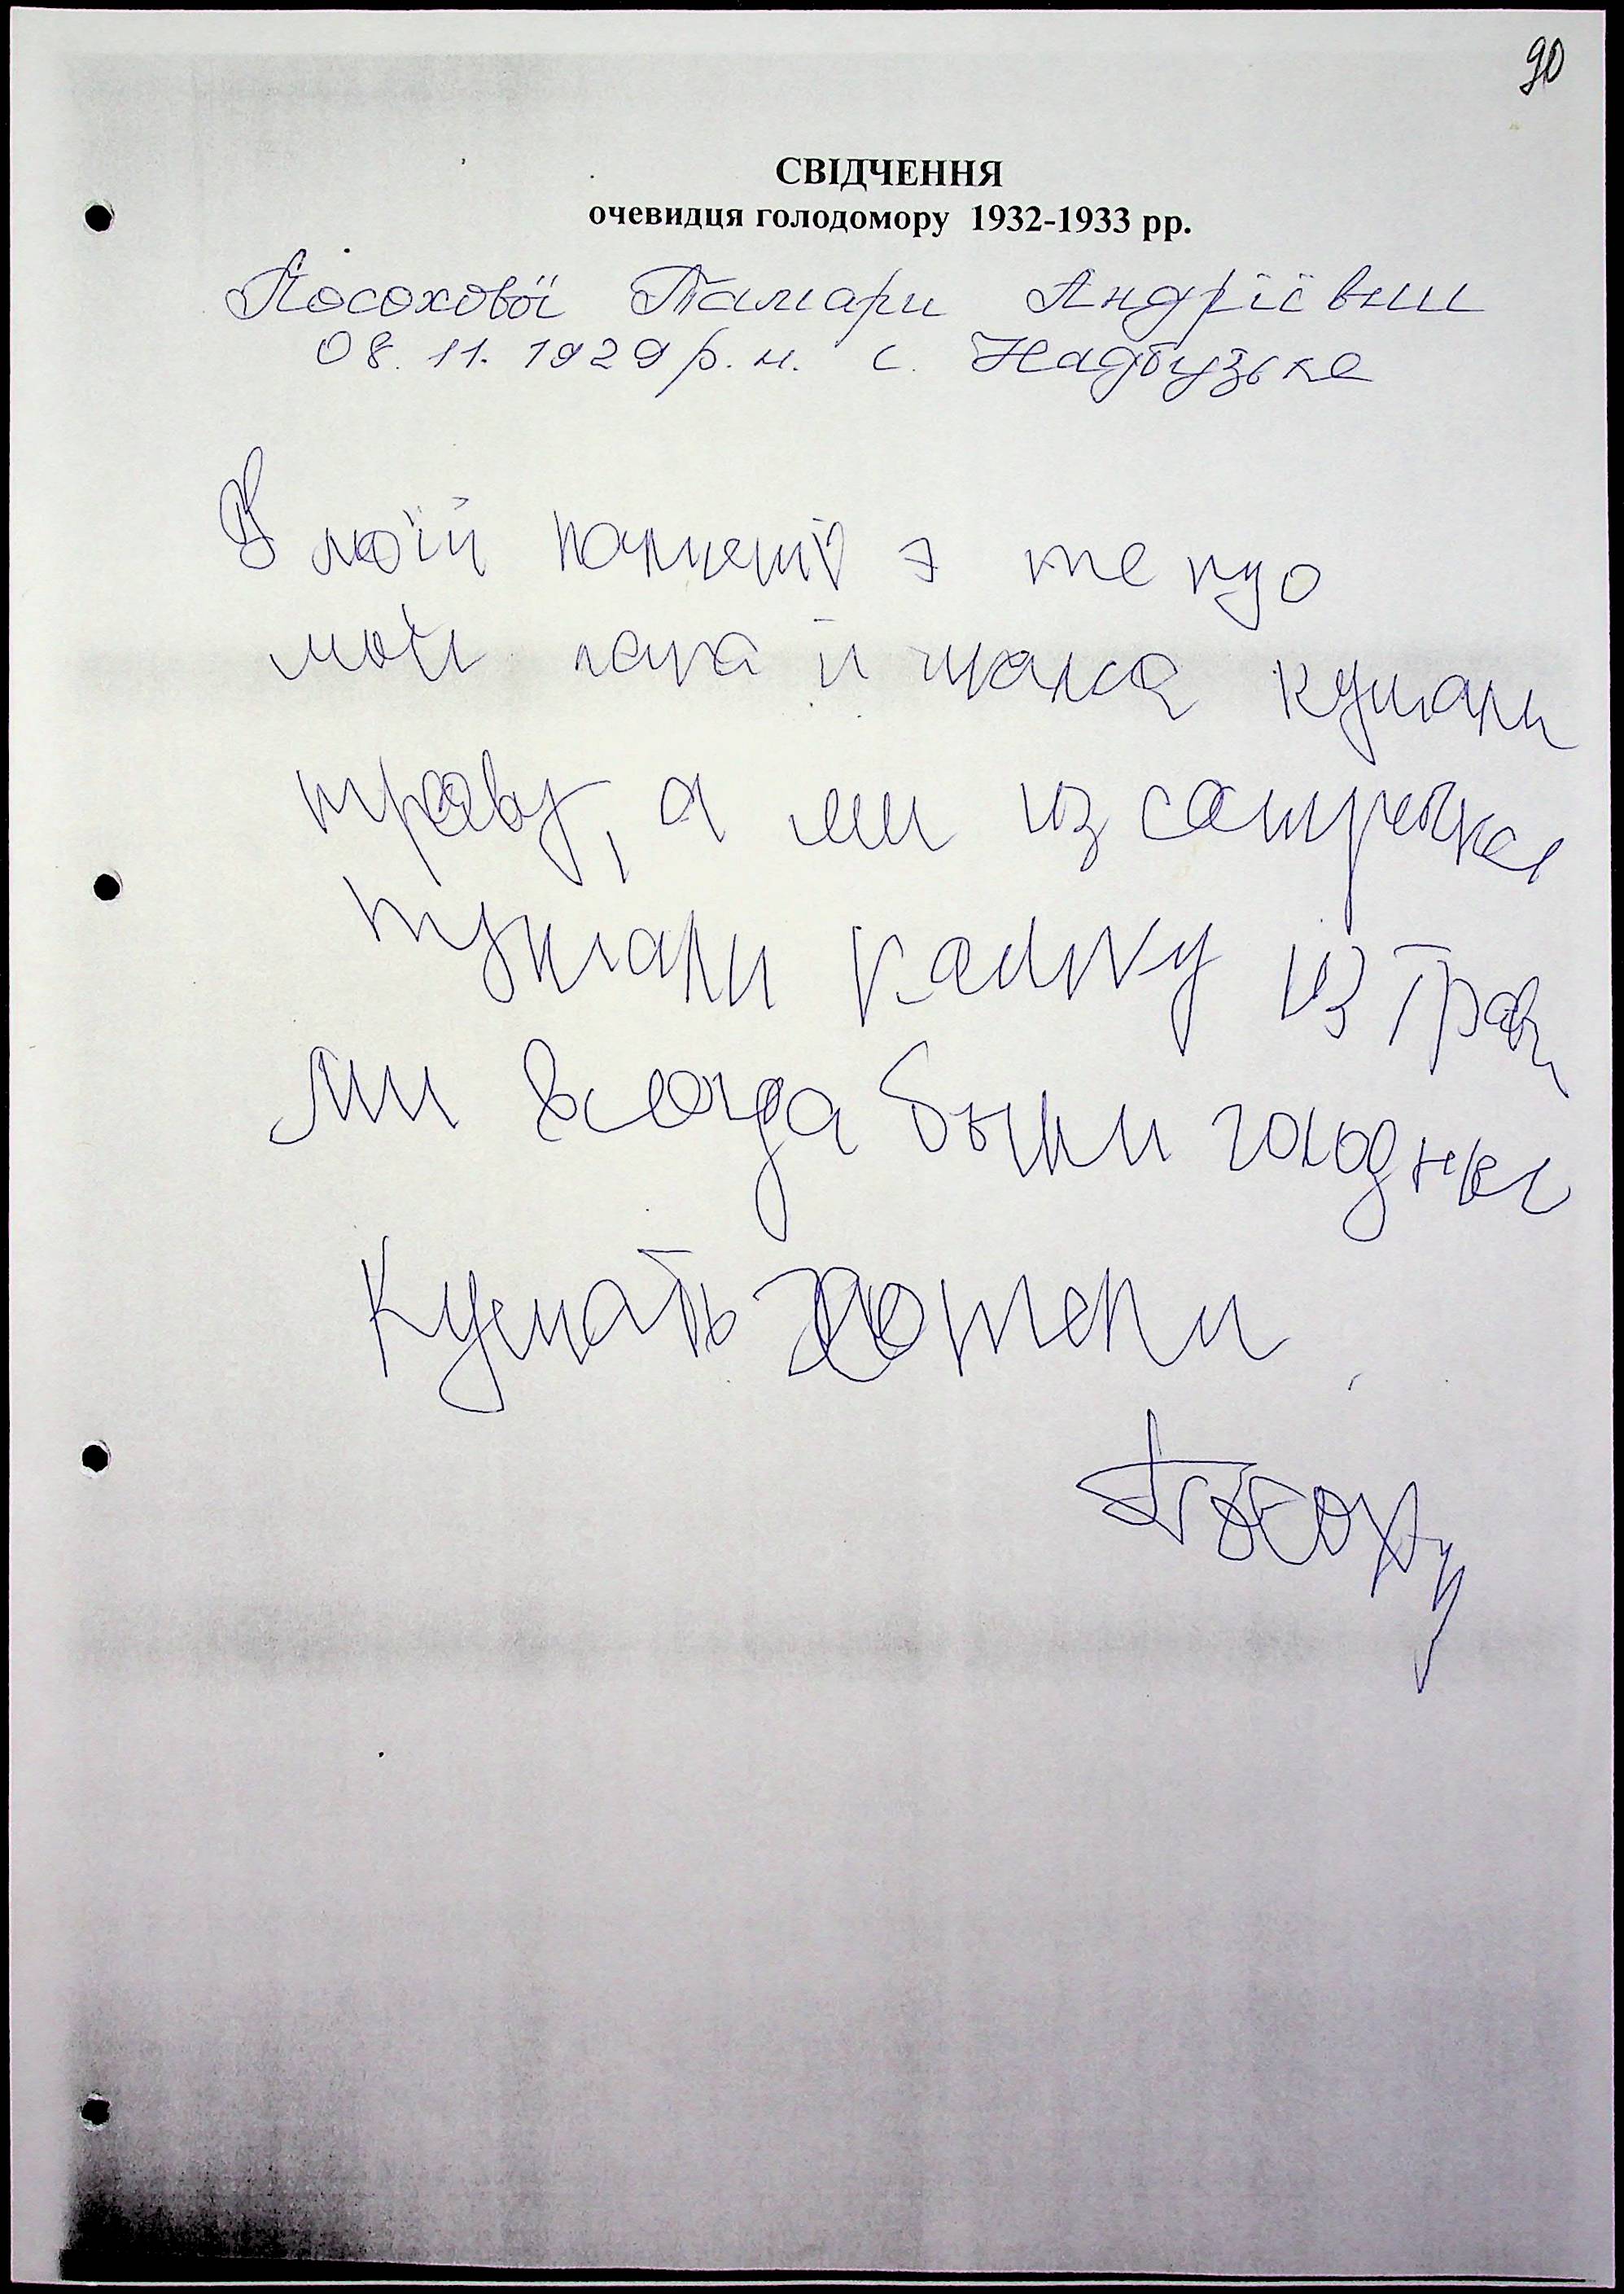 90
СВІДЧЕННЯ
очевидця голодомору 1932-1933 рр.
Посохової Тамари Андріївни
08.11.1929 р.н. с. Надбузьке
В моїй памняті э те що
мой папа и мама кушали
траву, а ми из сестрёнкой
кушали кашку из трави
ми всегда были голодные
Кушать хотели.